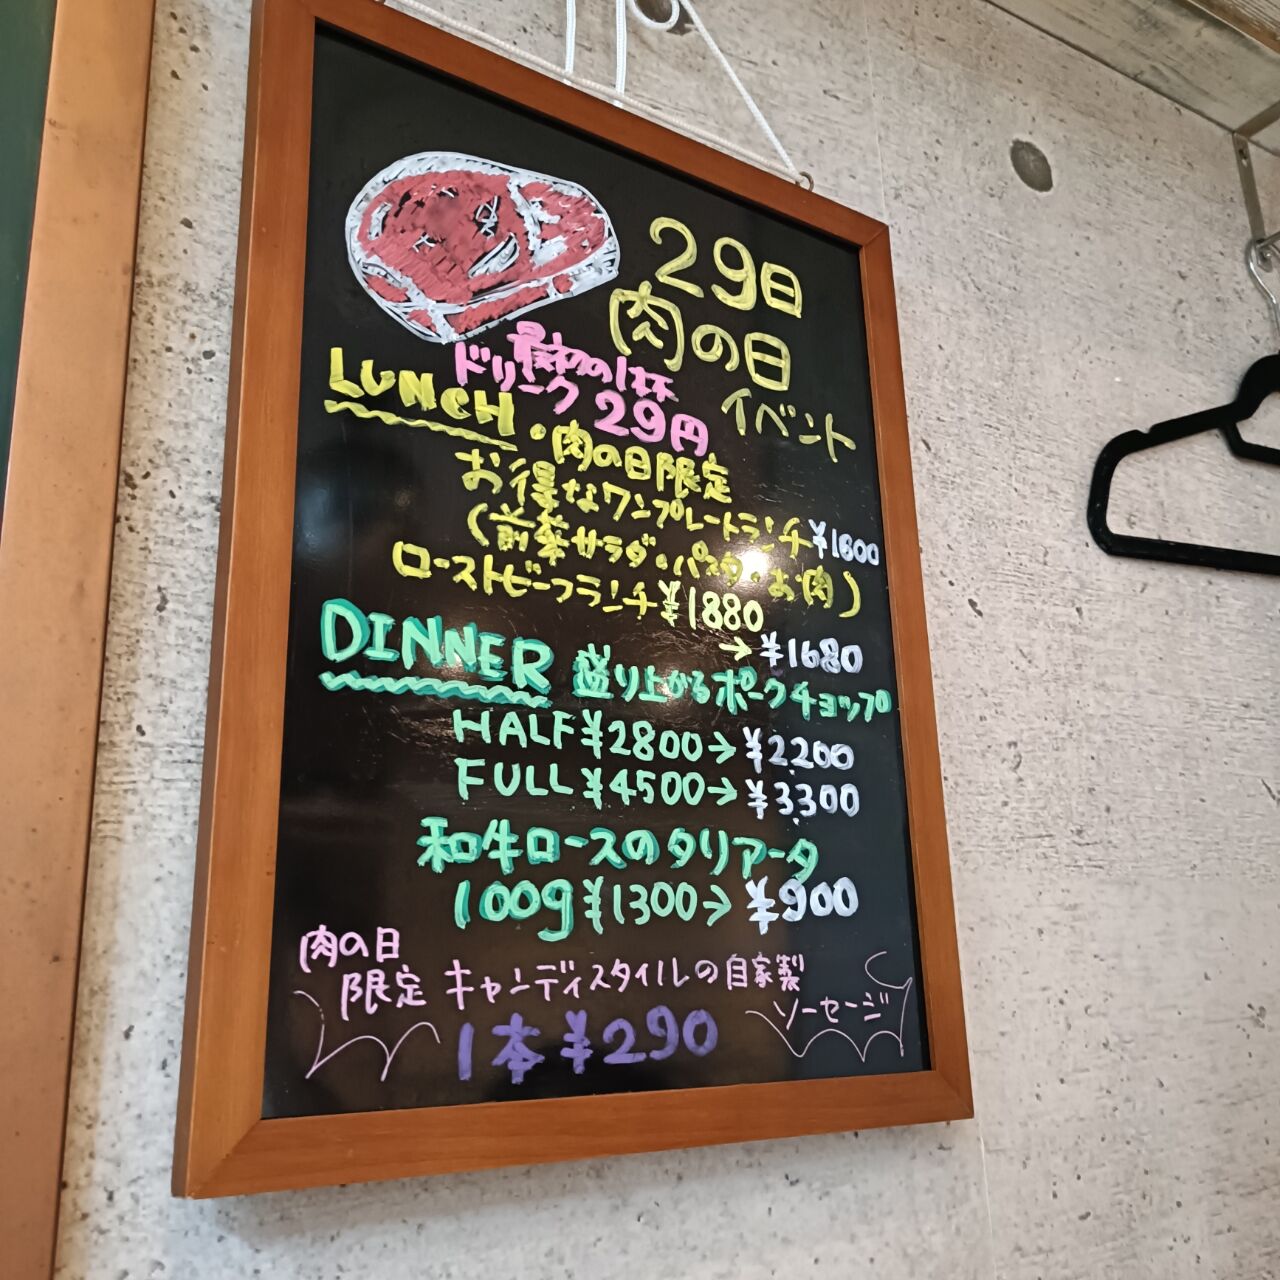 29日
肉の日
イベント
最初の1杯
ドリンク 29円
LUNCH
・肉の日限定
お得なワンプレートランチ ¥1600
(前菜サラダ・パスタ・お肉)
ローストビーフランチ ¥1880
→ ¥1680
DINNER 盛り上がるポークチョップ
HALF ¥2800 → ¥2200
FULL ¥4500 → ¥3300
和牛ロースのタリアータ
100g ¥1300 → ¥900
肉の日
限定 キャンディスタイルの自家製
ソーセージ
1本 ¥290